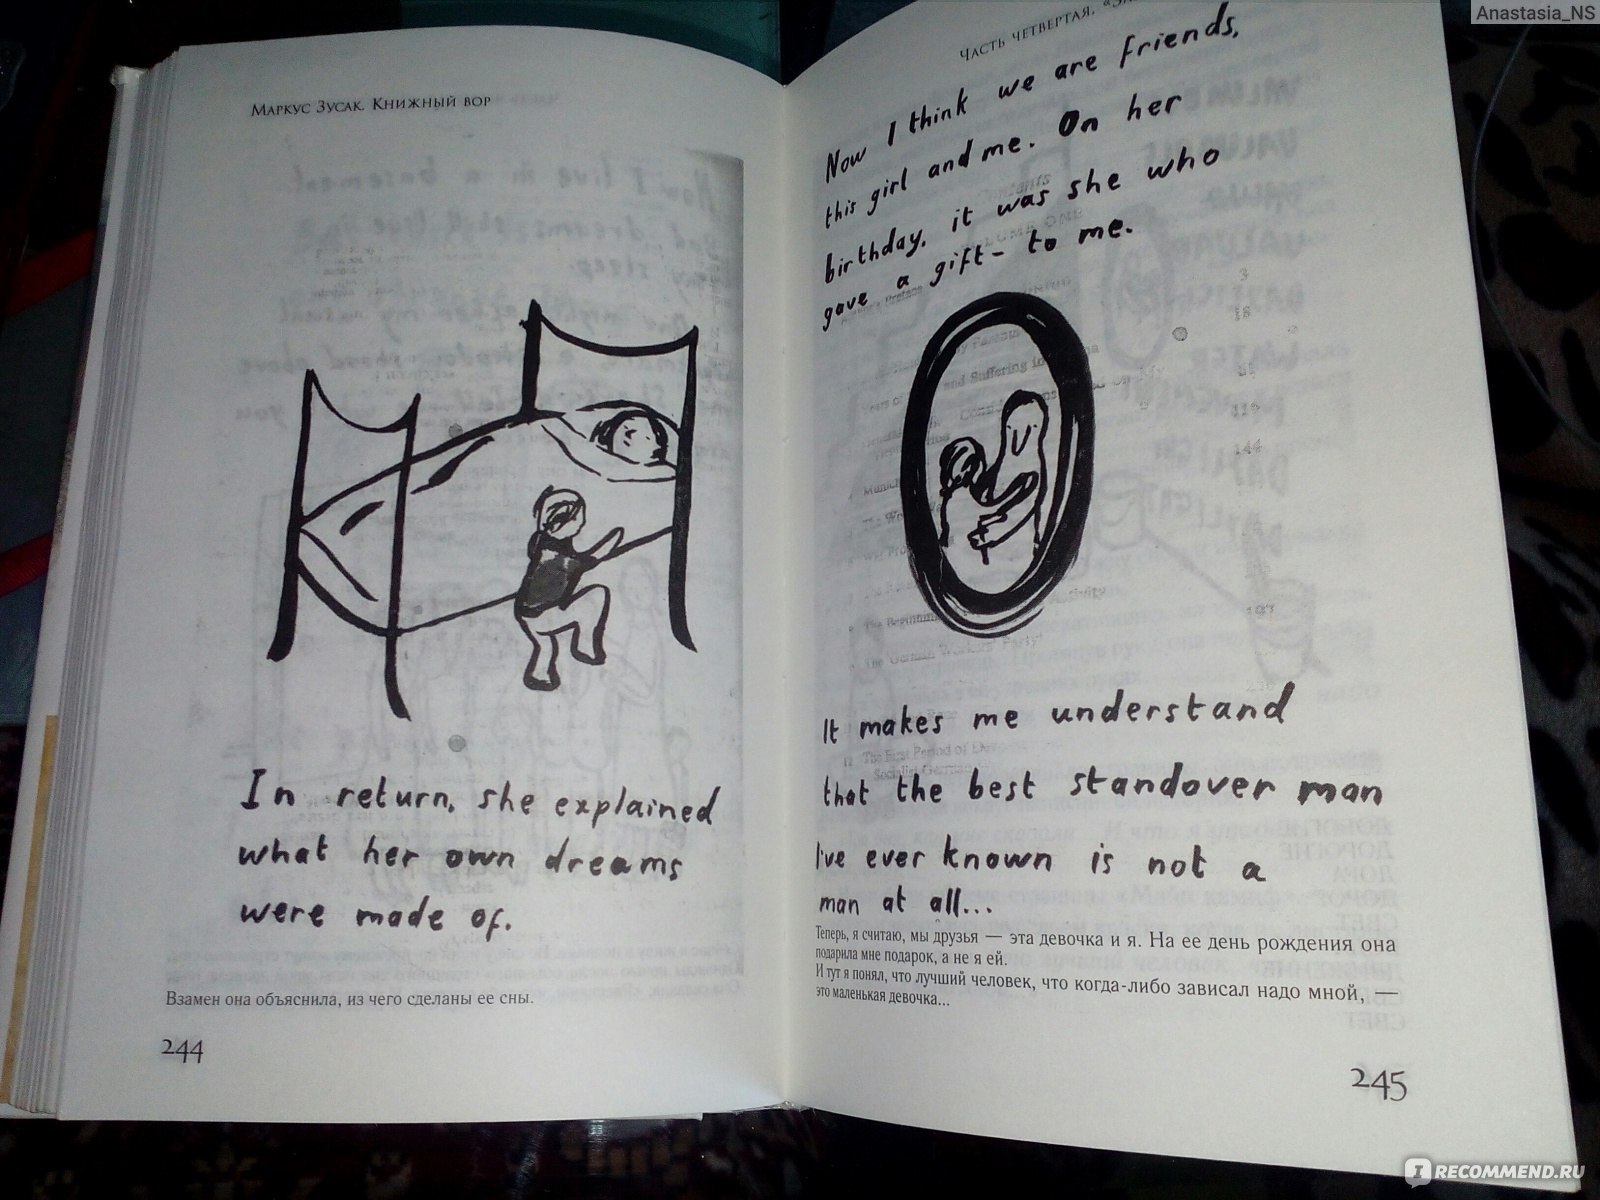 Anastasia_NS
Маркус Зусак. Книжный вор
In return, she explained
what her own dreams
were made of.
Взамен она объяснила, из чего сделаны ее сны.
244
Часть четвертая.
Now I think we are friends,
this girl and me. On her
birthday, it was she who
gave a gift- to me.
It makes me understand
that the best standover man
I've ever known is not a
man at all...
Теперь, я считаю, мы друзья — эта девочка и я. На ее день рождения она
подарила мне подарок, а не я ей.
И тут я понял, что лучший человек, что когда-либо зависал надо мной, —
это маленькая девочка...
245
IRECOMMEND.RU